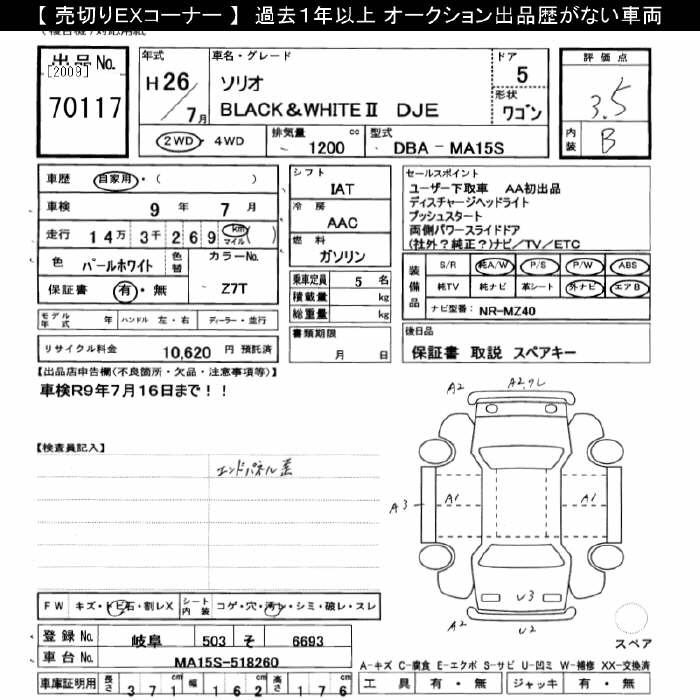 【 売切りEXコーナー 】 過去1年以上 オークション出品歴がない車両
出品No.
[2009]
70117
年式
H26/7月
車名・グレード
ソリオ
BLACK&WHITEⅡ DJE
ドア
5
形状
ワゴン
2WD・4WD
排気量
1200 cc
型式
DBA - MA15S
評価点
3.5
内装
B
車歴
自家用・( )
車検
9 年 7 月
走行
14万3千269 km マイル( )
色
パールホワイト
色替
カラーNo.
Z7T
保証書
有・無
シフト
IAT
冷房
AAC
燃料
ガソリン
乗車定員 5 名
積載量 kg
総重量 kg
セールスポイント
ユーザー下取車 AA初出品
ディスチャージヘッドライト
プッシュスタート
両側パワースライドドア
(社外?純正?)ナビ/TV/ETC
装備品
S/R 純A/W P/S P/W ABS
純TV 純ナビ 革シート 外ナビ エアB
ナビ型番: NR-MZ40
モデル年式 年 ハンドル 左・右 ディーラー・並行
書類期限
月 日
後日品
保証書 取説 スペアキー
リサイクル料金 10,620 円 預託済
【出品店申告欄(不良箇所・欠品・注意事項等)】
車検R9年7月16日まで!!
【検査員記入】
エンドパネル歪
A2
A2,クレ
A3
A1
A1
U3
A2
U2
スペア
FW キズ・トビ石・割レX
シート内装 コゲ・穴・汚レ・シミ・破レ・スレ
登録No. 岐阜 503 そ 6693
車台No. MA15S-518260
A-キズ C-腐食 E-エクボ S-サビ U-凹ミ W-補修 XX-交換済
車庫証明用 長さ 371cm 幅 162cm 高さ 176cm
工具 有・無 ジャッキ 有・無